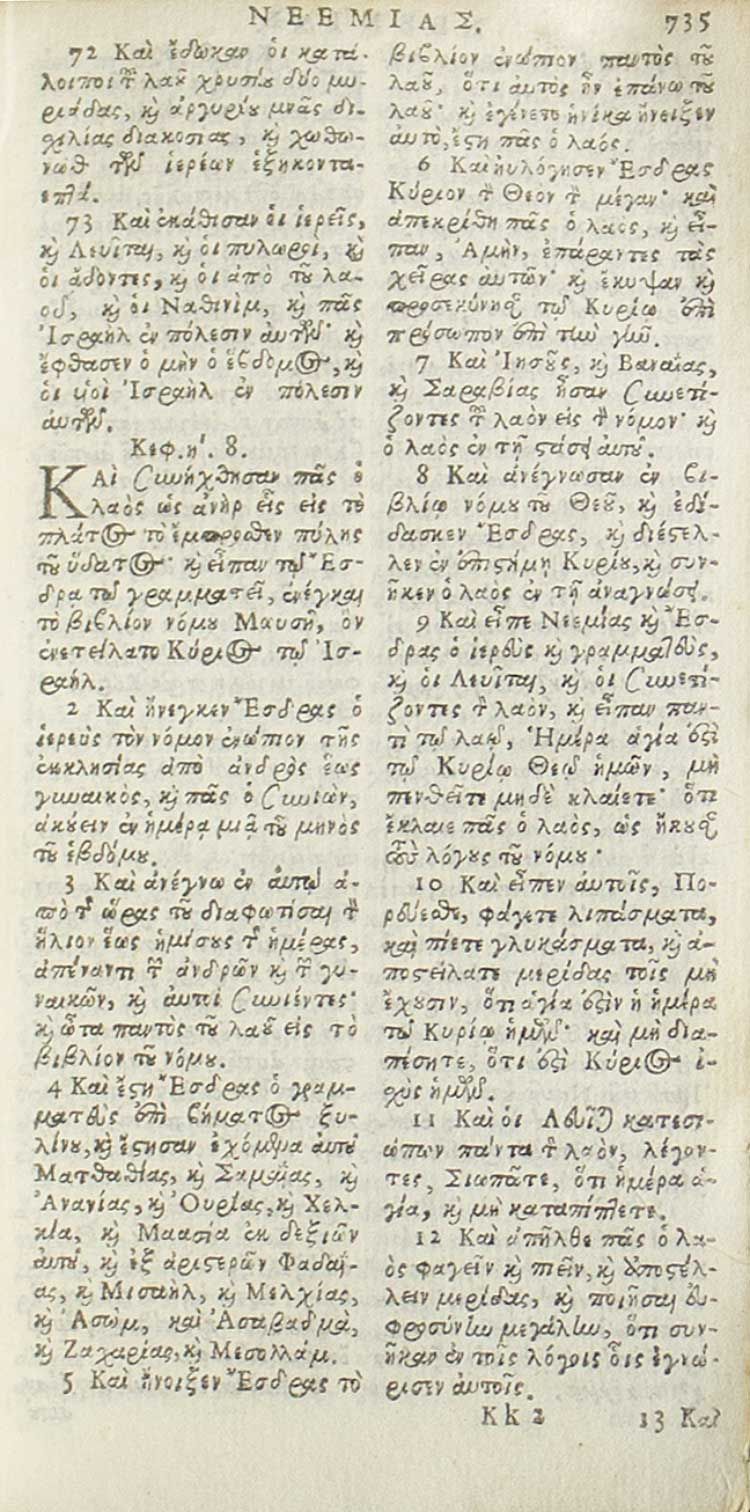 ΝΕΕΜΙΑΣ.
735
72 Καὶ ἔδωκαν οἱ κατά-
λοιποι τῦ λαῦ χρυσίυ δύο μυ-
ριάδας, κὶ ἀργυρίυ μνᾶς δι-
χιλίας διακοσίας, κὶ χωθω-
νὼθ τῶν ἱερέων ἑξηκοντα-
επτά.
73 Καὶ ἐκάθισαν οἱ ἱερεῖς,
κὶ Λευῖται, κὶ οἱ πυλωροὶ, κὶ
οἱ ἄδοντες, κὶ οἱ ἀπὸ τῦ λα-
οῦ, κὶ οἱ Ναθινὶμ, κὶ πᾶς
Ἰσραὴλ ἐν πόλεσιν αὐτῶν· κὶ
ἔφθασεν ὁ μὴν ὁ ἕβδομος, κὶ
οἱ υἱοὶ Ἰσραὴλ ἐν πόλεσιν
αὐτῶν.
Κεφ. η΄. 8.
ΚΑὶ συνήχθησαν πᾶς ὁ
λαὸς ὡς ἀνὴρ εἷς εἰς τὸ
πλάτος τὸ ἔμπροσθεν πύλης
τῦ ὕδατος· κὶ εἶπαν τῷ Ἔσ-
δρα τῷ γραμματεῖ, ἐνέγκαι
τὸ βιβλίον νόμυ Μαυσῆ, ὃν
ἐνετείλατο Κύριος τῷ Ἰσ-
ραήλ.
2 Καὶ ἤνεγκεν Ἔσδρας ὁ
ἱερεὺς τὸν νόμον ἐνώπιον τῆς
ἐκκλησίας ἀπὸ ἀνδρὸς ἕως
γυναικὸς, κὶ πᾶς ὁ συνιὼν,
ἀκύειν ἐν ἡμέρᾳ μιᾷ τῦ μηνὸς
τῦ ἑβδόμυ.
3 Καὶ ἀνέγνω ἐν αὐτῷ ἀ-
πὸ τῆς ὥρας τῦ διαφωτίσαι τὸν
ἥλιον ἕως ἡμίσυς τῆς ἡμέρας,
ἀπέναντι τῶν ἀνδρῶν κὶ τῶν γυ-
ναικῶν, κὶ αὐτοὶ συνιέντες·
κὶ ὦτα παντὸς τῦ λαῦ εἰς τὸ
βιβλίον τῦ νόμυ.
4 Καὶ ἔστη Ἔσδρας ὁ γραμ-
ματεὺς ἐπὶ βήματος ξυ-
λίνυ, κὶ ἔστησαν ἐχόμενα αὐτῦ
Ματθαθίας, κὶ Σαμαΐας, κὶ
Ἀνανίας, κὶ Ουρίας, κὶ Χελ-
κία, κὶ Μαασία ἐκ δεξιῶν
αὐτῦ, κὶ ἐξ ἀριστερῶν Φαδαΐ-
ας, κὶ Μισαὴλ, κὶ Μελχίας,
κὶ Ἀσὼμ, καὶ Ἀσαβαδμὰ,
κὶ Ζαχαρίας, κὶ Μεσολλάμ.
5 Καὶ ἤνοιξεν Ἔσδρας τὸ
βιβλίον ἐνώπιον παντὸς τῦ
λαῦ, ὅτι αὐτὸς ἦν ἐπάνω τῦ
λαῦ· κὶ ἐγένετο ἡνίκα ἤνοιξεν
αὐτὸ, ἔστη πᾶς ὁ λαός.
6 Καὶ ηὐλόγησεν Ἔσδρας
Κύριον τὸν Θεὸν τὸν μέγαν· καὶ
ἀπεκρίθη πᾶς ὁ λαὸς, κὶ εἶ-
παν, Ἀμὴν, ἐπάραντες τὰς
χεῖρας αὐτῶν· κὶ ἔκυψαν κὶ
προσεκύνησαν τῷ Κυρίῳ ἐπὶ
πρόσωπον ἐπὶ τὴν γῆν.
7 Καὶ Ἰησῦς, κὶ Βαναΐας,
κὶ Σαραβίας ἦσαν συνετί-
ζοντες τὸν λαὸν εἰς τὸν νόμον· κὶ
ὁ λαὸς ἐν τῇ στάσει αὐτῦ.
8 Καὶ ἀνέγνωσαν ἐν βι-
βλίῳ νόμυ τῦ Θεῦ, κὶ ἐδί-
δασκεν Ἔσδρας, κὶ διέστελ-
λεν ἐν ἐπιστήμῃ Κυρίυ, κὶ συν-
ῆκεν ὁ λαὸς ἐν τῇ ἀναγνώσει.
9 Καὶ εἶπε Νεεμίας κὶ Ἔσ-
δρας ὁ ἱερεὺς κὶ γραμματεὺς,
κὶ οἱ Λευῖται, κὶ οἱ συνετί-
ζοντες τὸν λαὸν, κὶ εἶπαν παν-
τὶ τῷ λαῷ, Ἡμέρα ἁγία ἐστὶ
τῷ Κυρίῳ Θεῷ ἡμῶν, μὴ
πενθεῖτε μηδὲ κλαίετε· ὅτι
ἔκλαιε πᾶς ὁ λαὸς, ὡς ἤκυσαν
τοὺς λόγυς τῦ νόμυ·
10 Καὶ εἶπεν αὐτοῖς, Πο-
ρεύεσθε, φάγετε λιπάσματα,
καὶ πίετε γλυκάσματα, κὶ ἀ-
ποστείλατε μερίδας τοῖς μὴ
ἔχυσιν, ὅτι ἁγία ἐστὶν ἡ ἡμέρα
τῷ Κυρίῳ ἡμῶν· καὶ μὴ δια-
πέσητε, ὅτι ἐστὶ Κύριος ἰ-
χὺς ἡμῶν.
11 Καὶ οἱ Λευῖται κατεσι-
ώπων πάντα τὸν λαὸν, λέγον-
τες, Σιωπᾶτε, ὅτι ἡμέρα ἁ-
γία, κὶ μὴ καταπίπτετε.
12 Καὶ ἀπῆλθε πᾶς ὁ λα-
ὸς φαγεῖν κὶ πιεῖν, κὶ ἀποστέλ-
λειν μερίδας, κὶ ποιῆσαι εὐ-
φροσύνην μεγάλην, ὅτι συν-
ῆκαν ἐν τοῖς λόγοις οἷς ἐγνώ-
ρισεν αὐτοῖς.
Kk 2
13 Καὶ